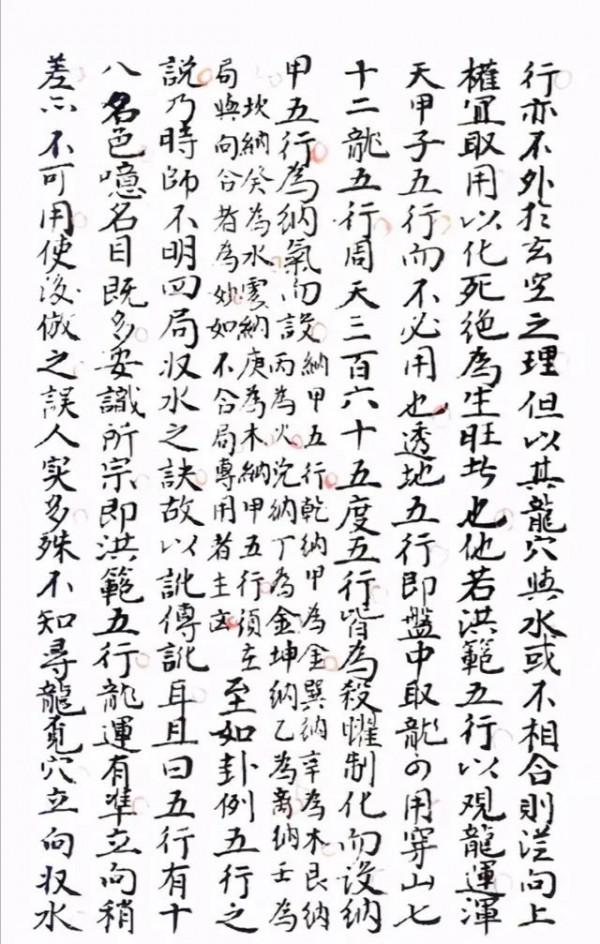 行亦不外扵玄空之理但以其龍穴與水或不相合則從向上
權宜取用以化死絕為生旺者也他若洪範五行以观龍運渾
天甲子五行而不必用也透地五行即盤中取龍可用穿山七
十二龍五行周天三百六十五度五行皆為殺曜制化而設納
甲五行為納氣而設
納甲五行乾納甲為金巽納辛為木艮納
丙為火兌納丁為金坤納乙為離納壬為
坎納癸為水震納庚為木納甲五行須在
局與向合者為妙如不合局專用者主凶
至如卦例五行之
說乃時師不明四局収水之訣故以訛傳訛耳且曰五行有十
八名色噫名目既多安識所宗即洪範五行龍運有準立向稍
差亦不可用使後倣之誤人实多殊不知尋龍覓穴立向収水